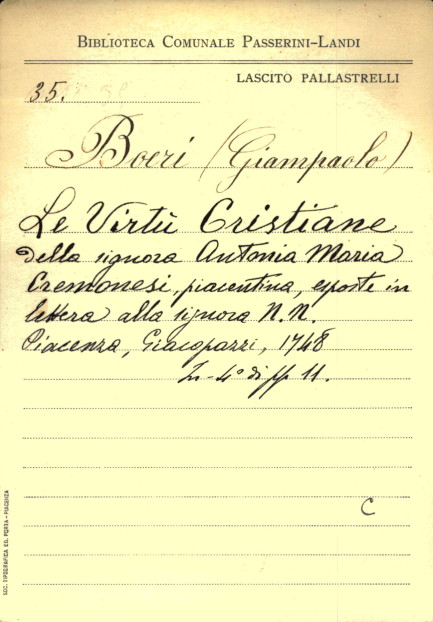 BIBLIOTECA COMUNALE PASSERINI-LANDI
LASCITO PALLASTRELLI
35.
Boeri (Giampaolo)
Le Virtù Cristiane
della signora Antonia Maria
Cremonesi, piacentina, esposte in
lettera alla signora N.N.
Piacenza, Giacopazzi, 1748
In-4° di pp 11.
C
SOC. TIPOGRAFICA ED. PORTA - PIACENZA